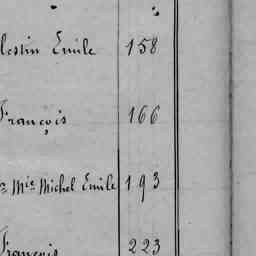 lestin Emile 158
François 166
Mie Michel Emile 193
François 223